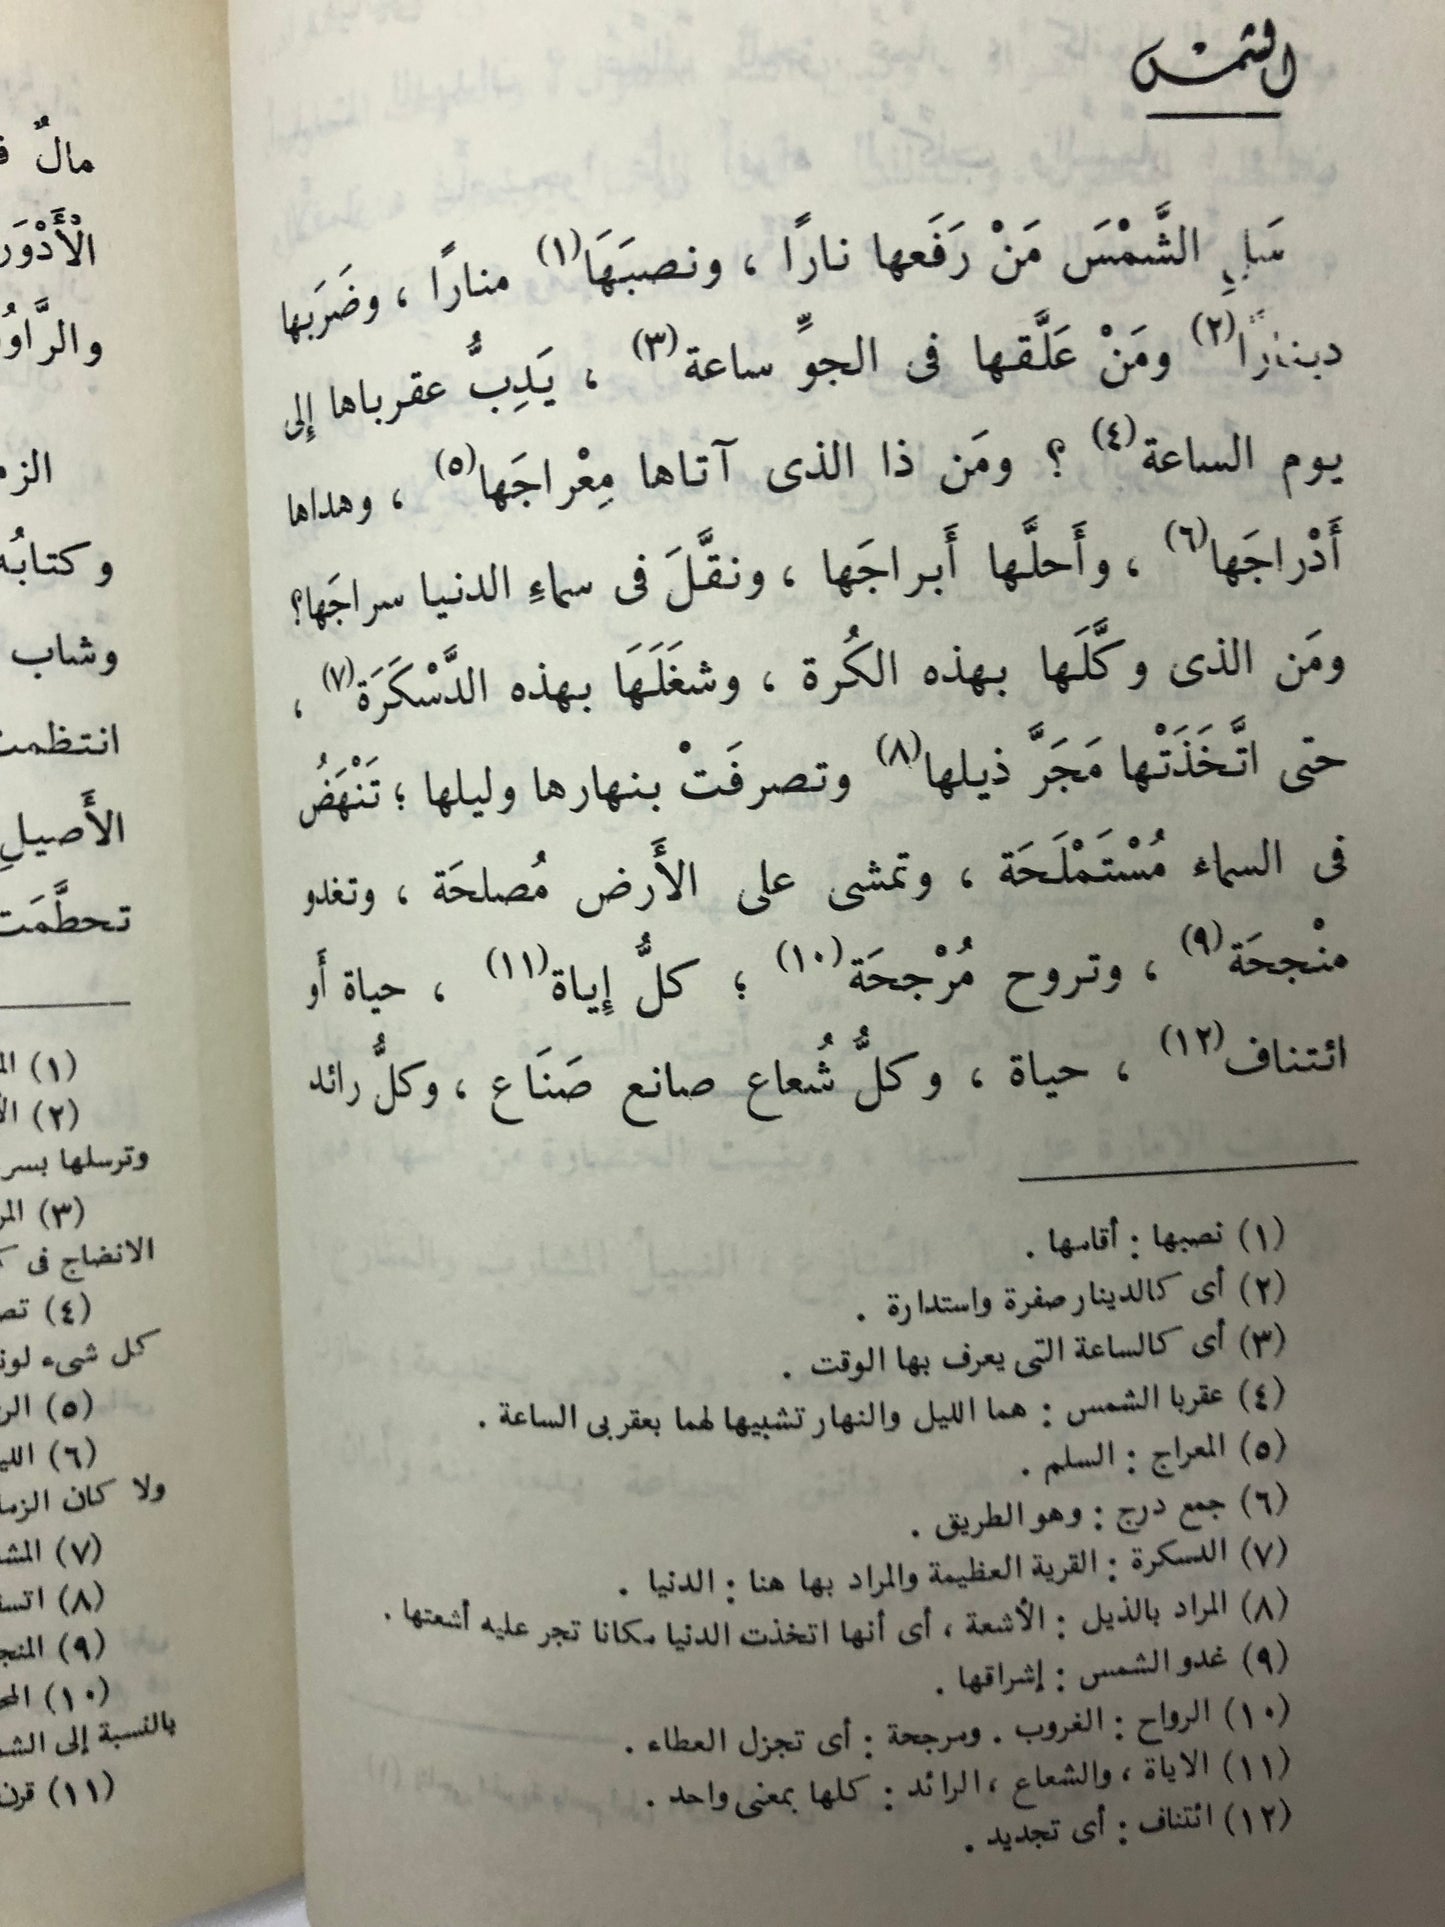 الشمس
سَلِ الشَّمْسَ مَنْ رَفَعها نارًا ، ونصبَهَا(١) منارًا ، وضَرَبها
دينارًا(٢) ومَنْ عَلَّقها فى الجوِّ ساعة(٣) ، يَدِبُّ عقرباها إِلى
يوم الساعة(٤) ؟ ومَن ذا الذى آتاها مِعْراجَها(٥) ، وهداها
أَدْراجَها(٦) ، وأَحلَّها أَبراجَها ، ونقَّلَ فى سماءِ الدنيا سراجَها؟
ومَن الذى وكَّلَها بهذه الكُرة ، وشغَلَهَا بهذه الدَّسْكَرَة(٧) ،
حتى اتَّخَذَتْها مَجَرَّ ذيلها(٨) وتصرفَتْ بنهارها وليلها ؛ تَنْهَضُ
فى السماء مُسْتَمْلَحَة ، وتمشى على الأَرض مُصلحَة ، وتغدو
منْجحَة(٩) ، وتروح مُرْجحَة(١٠) ؛ كلُّ إِياة(١١) ، حياة أَو
ائتناف(١٢) ، حياة ، وكلُّ شُعاع صانع صَنَاع ، وكلُّ رائد
(١) نصبها : أقامها .
(٢) أى كالدينار صفرة واستدارة .
(٣) أى كالساعة التى يعرف بها الوقت .
(٤) عقربا الشمس : هما الليل والنهار تشبيها لهما بعقربى الساعة .
(٥) المعراج : السلم .
(٦) جمع درج : وهو الطريق .
(٧) الدسكرة : القرية العظيمة والمراد بها هنا : الدنيا .
(٨) المراد بالذيل : الأشعة ، أى أنها اتخذت الدنيا مكانا تجر عليه أشعتها .
(٩) غدو الشمس : إشراقها .
(١٠) الرواح : الغروب . ومرجحة : أى تجزل العطاء .
(١١) الاياة ، والشعاع ، الرائد : كلها بمعنى واحد .
(١٢) ائتناف : أى تجديد .
مالٌ
وكتابُه
وشاب
تحطَّمَت
(١)
(٢)
وترسلها
(٣)
الانضاج فى
(٤)
كل شىء
(٥)
(٦)
ولا كان
(٧)
(٨)
(٩)
(١٠)
بالنسبة إلى
(١١)